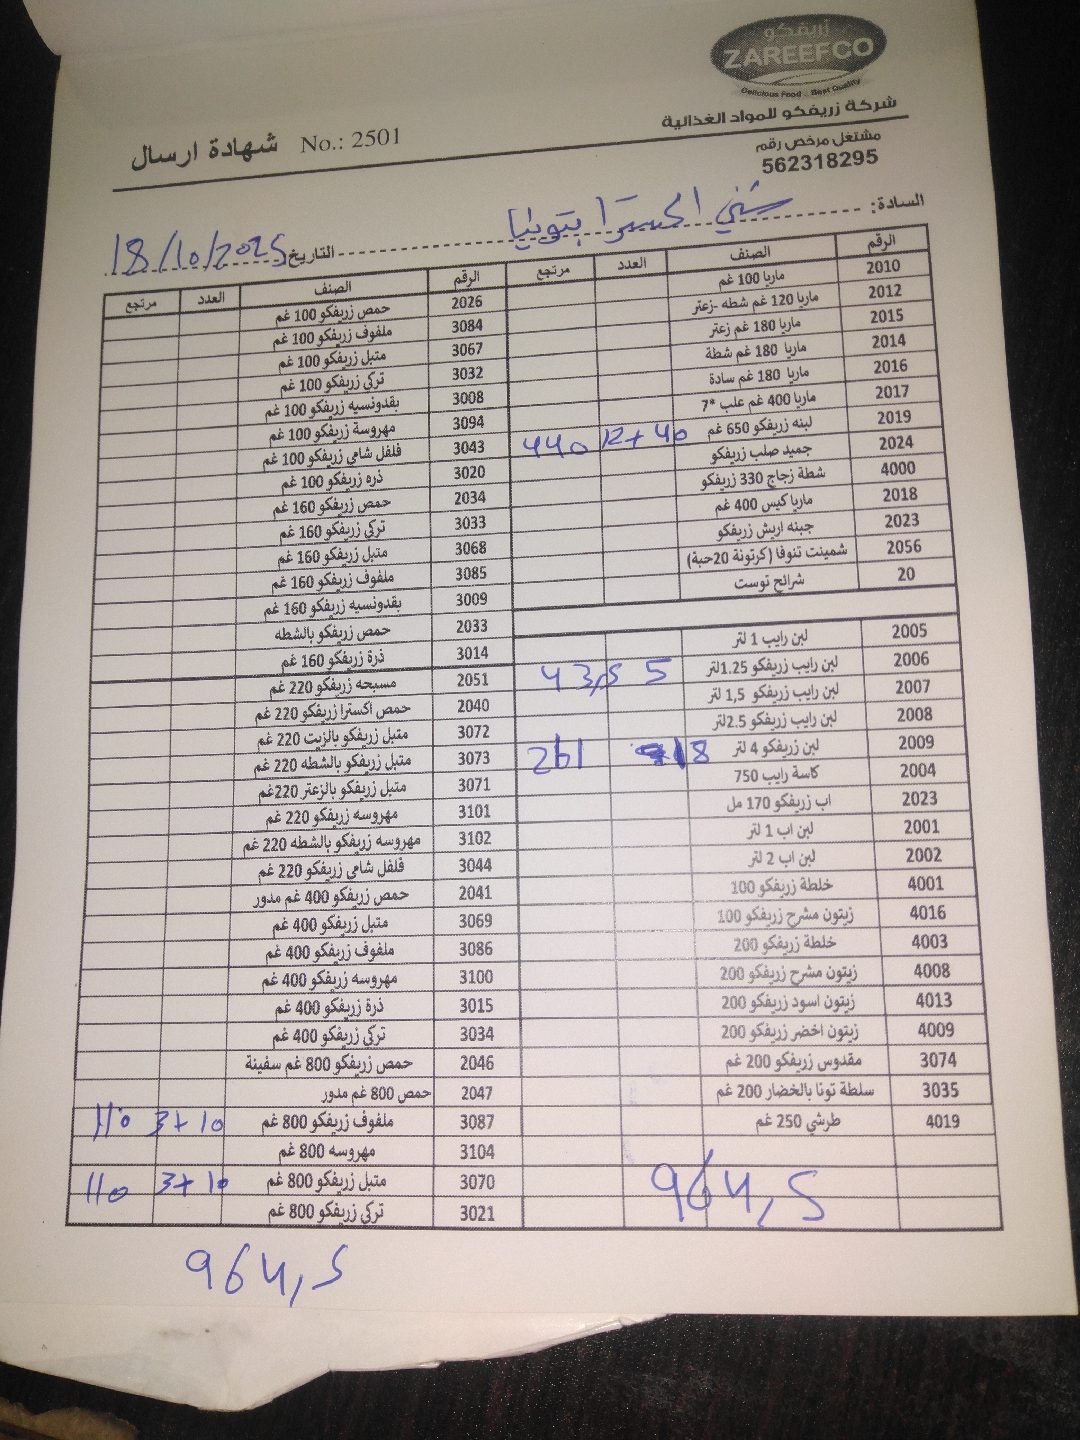 زريفكو
ZAREEFCO
Delicious Food .. Best Quality
شركة زريفكو للمواد الغذائية
مشتغل مرخص رقم
562318295
شهادة ارسال No.: 2501
السادة:
التاريخ 18/10/2025
الرقم الصنف العدد مرتجع الرقم الصنف العدد مرتجع
2010 ماريا 100 غم 2026 حمص زريفكو 100 غم
2012 ماريا 120 غم شطه -زعتر 3084 ملفوف زريفكو 100 غم
2015 ماريا 180 غم زعتر 3067 متبل زريفكو 100 غم
2014 ماريا 180 غم شطة 3032 تركي زريفكو 100 غم
2016 ماريا 180 غم سادة 3008 بقدونسيه زريفكو 100 غم
2017 ماريا 400 غم علب *7 3094 مهروسة زريفكو 100 غم
2019 لبنه زريفكو 650 غم 12+40 440 3043 فلفل شامي زريفكو 100 غم
2024 جميد صلب زريفكو 3020 ذره زريفكو 100 غم
4000 شطة زجاج 330 زريفكو 2034 حمص زريفكو 160 غم
2018 ماريا كيس 400 غم 3033 تركي زريفكو 160 غم
2023 جبنه اريش زريفكو 3068 متبل زريفكو 160 غم
2056 شمينت تنوفا (كرتونة 20حبة) 3085 ملفوف زريفكو 160 غم
20 شرائح توست 3009 بقدونسيه زريفكو 160 غم
2033 حمص زريفكو بالشطه
2005 لبن رايب 1 لتر 3014 ذرة زريفكو 160 غم
2006 لبن رايب زريفكو 1.25لتر 5 43,5 2051 مسبحه زريفكو 220 غم
2007 لبن رايب زريفكو 1,5 لتر 2040 حمص اكسترا زريفكو 220 غم
2008 لبن رايب زريفكو 2.5لتر 3072 متبل زريفكو بالزيت 220 غم
2009 لبن زريفكو 4 لتر 18 261 3073 متبل زريفكو بالشطه 220 غم
2004 كاسة رايب 750 3071 متبل زريفكو بالزعتر 220غم
2023 اب زريفكو 170 مل 3101 مهروسه زريفكو 220 غم
2001 لبن اب 1 لتر 3102 مهروسه زريفكو بالشطه 220 غم
2002 لبن اب 2 لتر 3044 فلفل شامي زريفكو 220 غم
4001 خلطة زريفكو 100 2041 حمص زريفكو 400 غم مدور
4016 زيتون مشرح زريفكو 100 3069 متبل زريفكو 400 غم
4003 خلطة زريفكو 200 3086 ملفوف زريفكو 400 غم
4008 زيتون مشرح زريفكو 200 3100 مهروسه زريفكو 400 غم
4013 زيتون اسود زريفكو 200 3015 ذرة زريفكو 400 غم
4009 زيتون اخضر زريفكو 200 3034 تركي زريفكو 400 غم
3074 مقدوس زريفكو 200 غم 2046 حمص زريفكو 800 غم سفينة
3035 سلطة تونا بالخضار 200 غم 2047 حمص 800 غم مدور
4019 طرشي 250 غم 3087 ملفوف زريفكو 800 غم 3+10 110
3104 مهروسه 800 غم
964,5 3070 متبل زريفكو 800 غم 3+10 110
3021 تركي زريفكو 800 غم
964,5